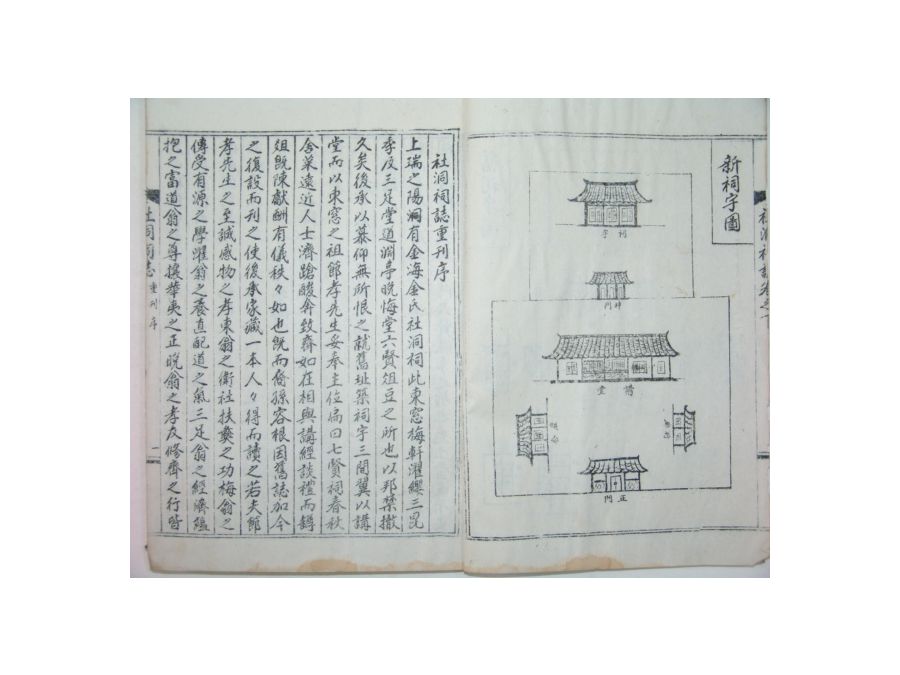 新祠宇圖
祠宇
神門
講堂
正門
社洞祠誌重刊序
上瑞之陽洞有金海金氏社洞祠此東窓梅軒濯纓三昆
季及三足堂道淵亭晩悔堂六賢俎豆之所也以邦禁撤
久矣後承以慕仰無所恨之就舊址築祠宇三間翼以講
堂而以東窓之祖節孝先生妥奉主位扁曰七賢祠春秋
舍菜遠近人士濟蹌駿奔致齊如在相與講經談禮而罇
俎旣陳獻酬有儀秩々如也旣而裔孫容根因舊誌加今
之復設而刊之使後承家藏一本人々得而讀之若夫節
孝先生之至誠感物之孝東翁之衛社扶彝之功梅翁之
傳受有源之學濯翁之養直配道之氣三足翁之經濟蘊
抱之富道翁之尊攘華夷之正晩翁之孝友修齊之行皆
社洞祠誌 重刊序 一